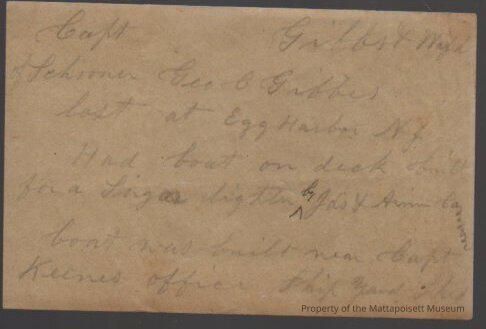 Capt Gibbs & Wife
of Schooner Geo C Gibbs
lost at Egg Harbor NJ
Had boat on deck built
for a Sugar lighter by Jas &
boat was built near Capt
Keenes office Ship Yard
Property of the Mattapoisett Museum